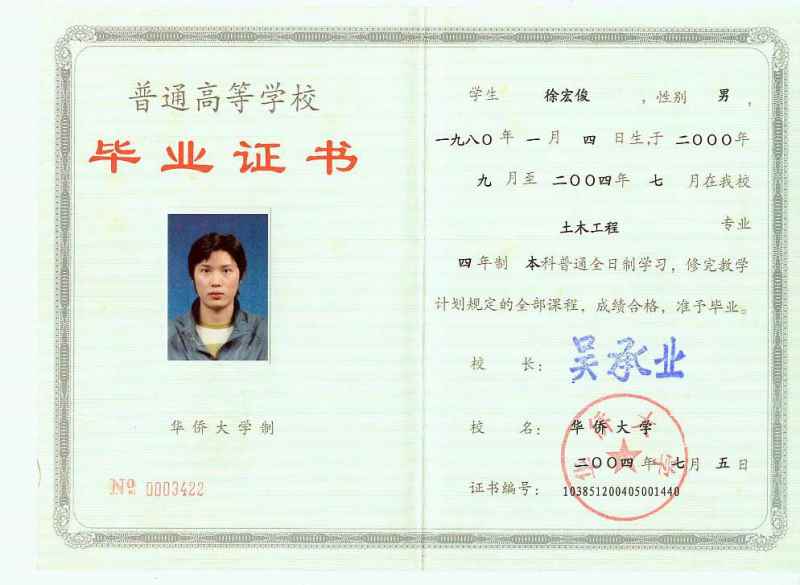 普通高等学校
毕业证书
华侨大学制
№ 0003422
学生 徐宏俊 ，性别 男 ，
一九八〇年 一 月 四 日生,于 二〇〇〇年
九 月至 二〇〇四年 七 月在我校
土木工程 专业
四 年制 本科普通全日制学习，修完教学
计划规定的全部课程，成绩合格，准予毕业。
校 长： 吴承业
校 名： 华侨大学
二〇〇四 年 七 月 五 日
证书编号： 103851200405001440